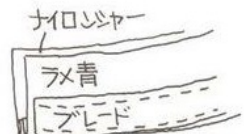 ナイロンシャー
ラメ青
ブレード